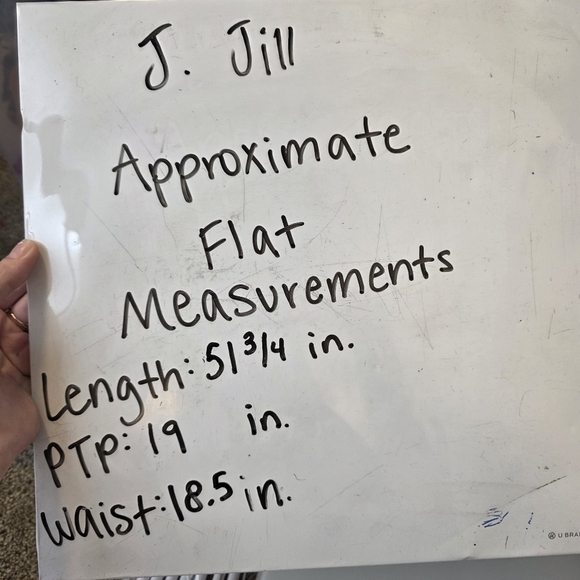 J. Jill
Approximate
Flat
Measurements
Length: 51 3/4 in.
PTP: 19 in.
Waist: 18.5 in.
U BRA